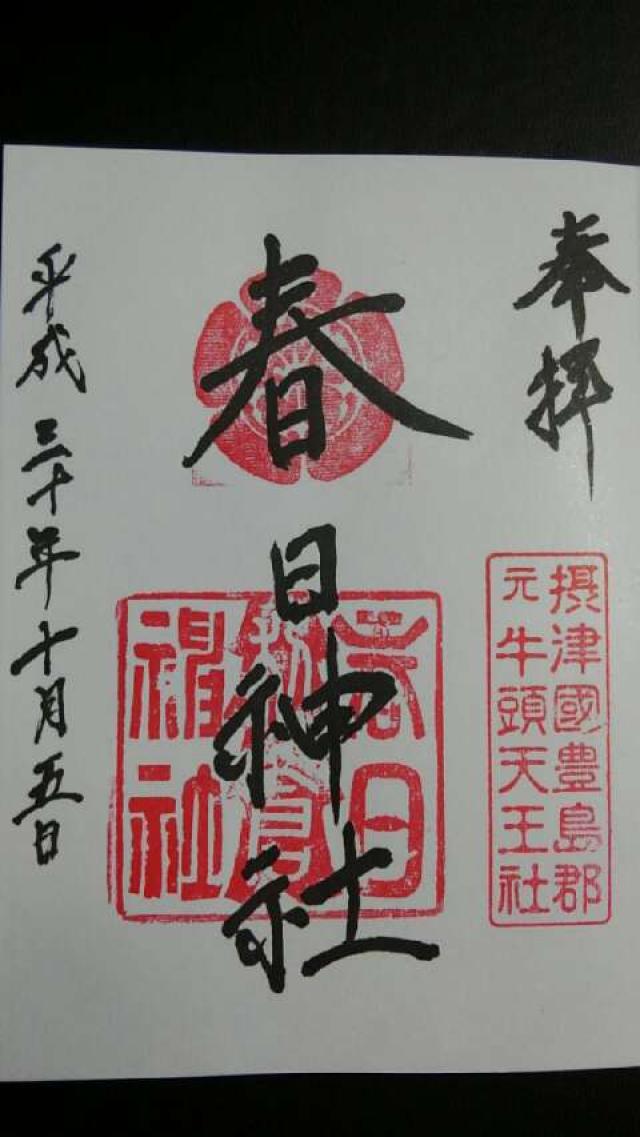 奉拝
摂津國豊島郡
元牛頭天王社
春日神社
平成三十年十月五日